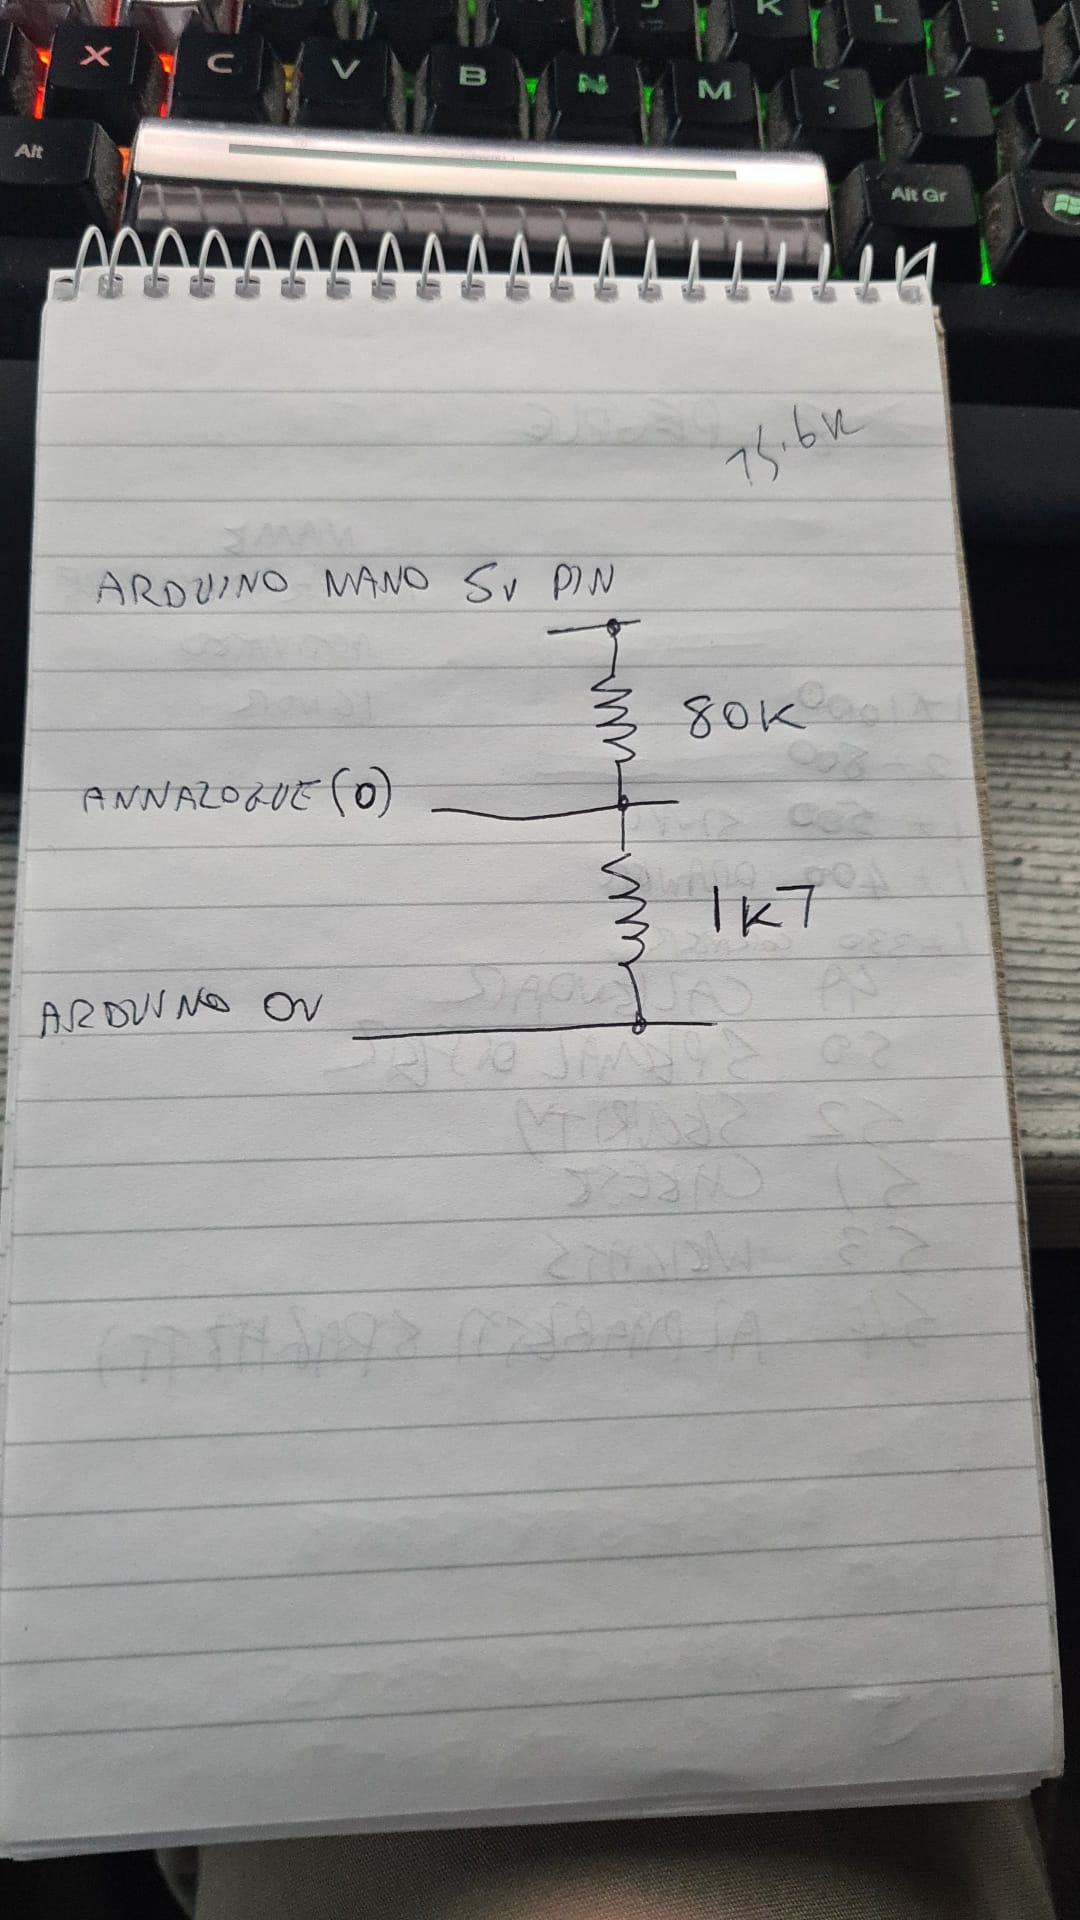 K L
X C V B N M < ,
> .
? /
Alt
Alt Gr
75.6K
ARDUINO NANO 5V PIN
80K
ANNALOGUE (0)
1K7
ARDUINO 0V